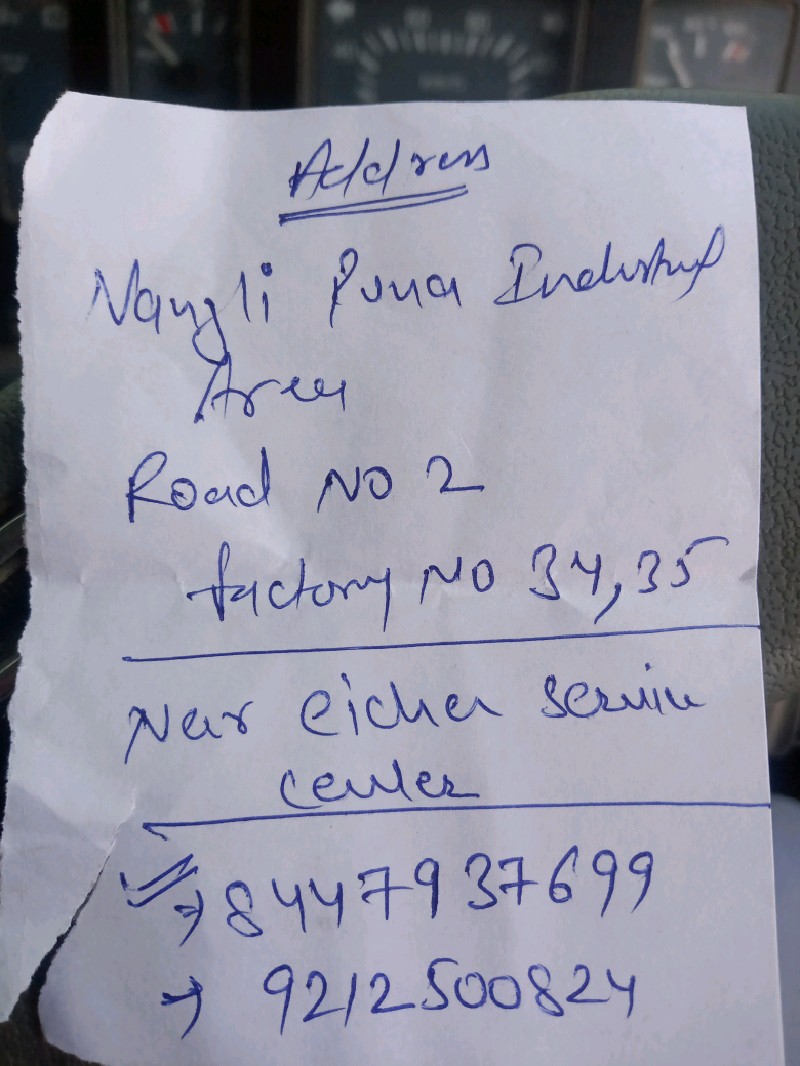 Address
Nangli Puna Industrial
Area
Road NO 2
factory NO 34,35
Near eicher service
center
8447937699
9212500824